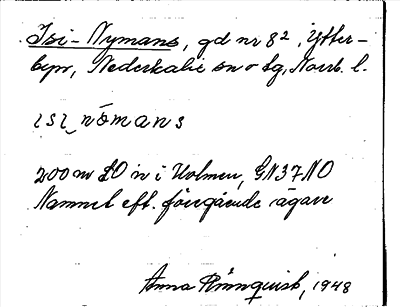 Isi-Nymans, gd nr 8², Ytter-
byn, Nederkalix sn o tg, Norrb. l.
ɩsɩ nömans
200 m SO n i Holmen, GN37NO
Namnet eft. föregående ägare
Anna Rönnquist, 1948